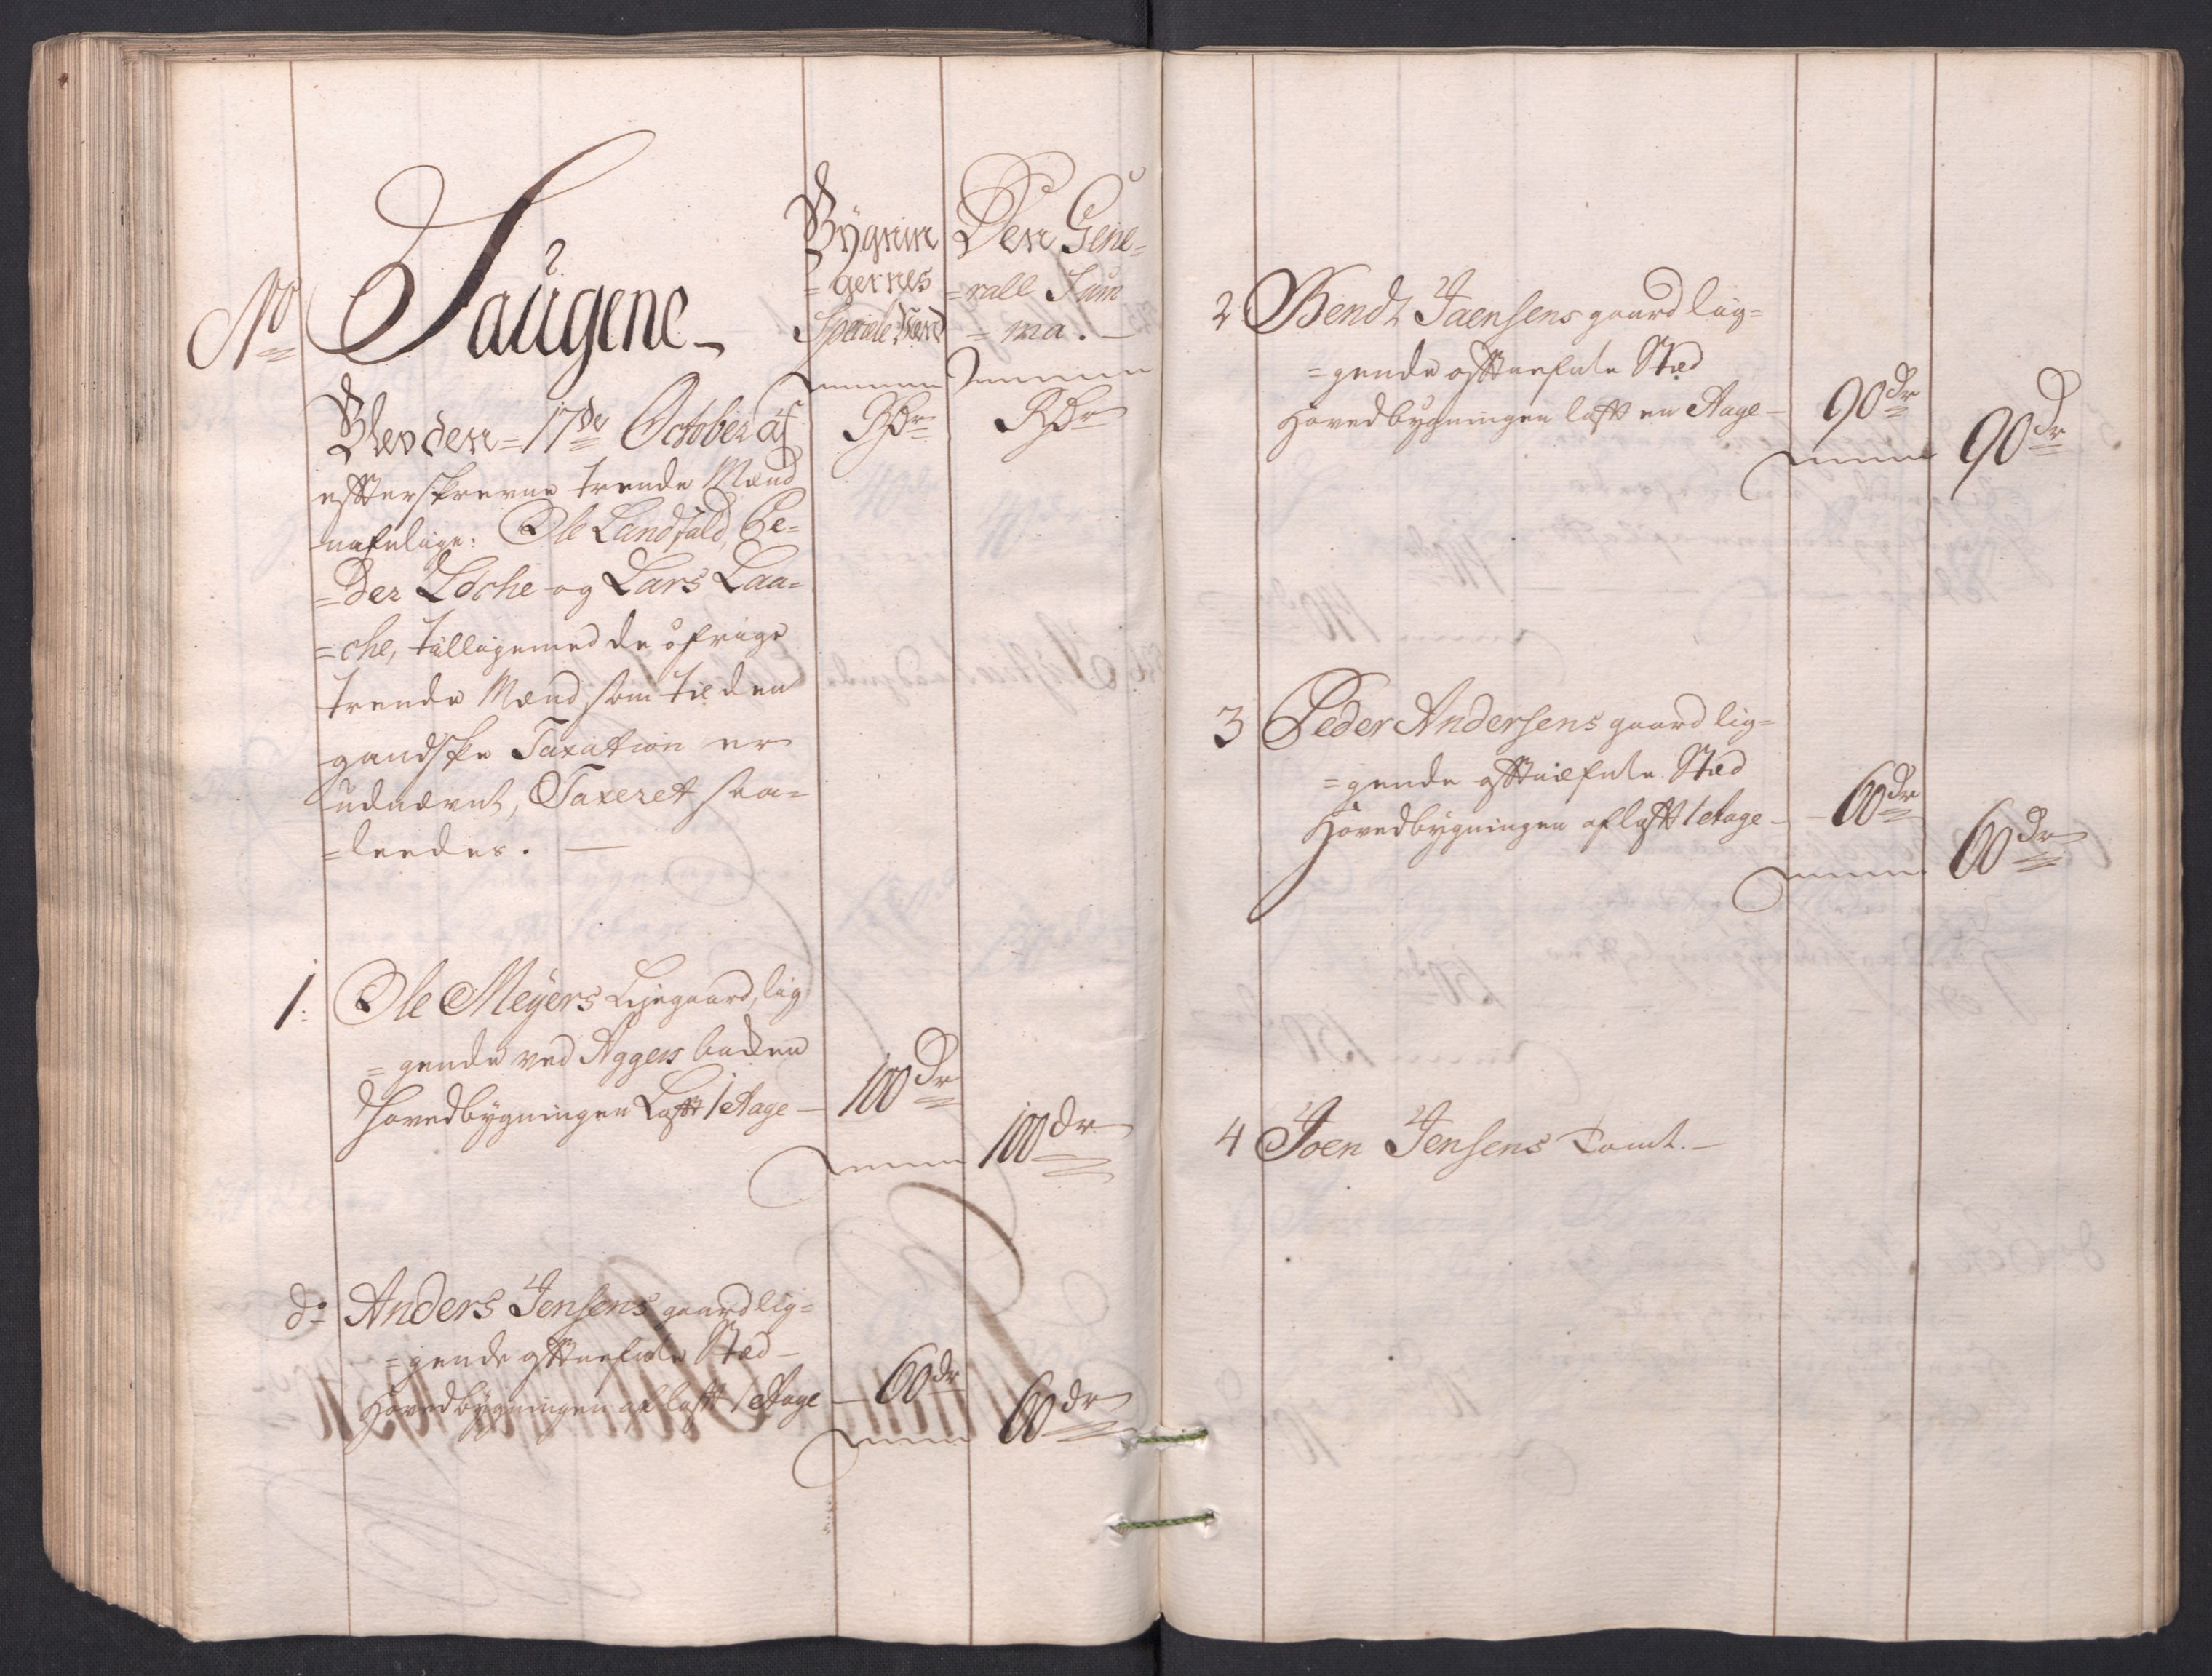 No
Saugene
Bygnin
=gernes
Speciele Værd
Den Gene=
=rall Sum
=ma.
Blev den 17de October af
Rdr
Rdr
effterskrevne trende Mænd
nafnlige: Ole Landfald, Pe=
=der Løche og Lars Laa=
=che, tilligemed de øfrige
trende Mænd som til den
gandske Taxation er
udnævnt, Taxeret saa=
=leedes.
1: Ole Meÿers Lÿegaard, lig
=gende ved Aggers backen
Hovedbÿgningen Lafft 1 Etage 100 dr
100 dr
do Anders Jensens gaard lig=
=gende Sted
Hovedbÿgningen af lafft 1 Etage 60 dr
60 dr
2 Bendt Jaensens gaard lig=
=gende Sted
Hovedbygningen lafft en Etage 90 dr
90 dr
3 Peder Andersens gaard lig=
=gende Sted
Hovedbÿgningen af lafft 1 Etage 60 dr
60 dr
4 Joen Jensens Tomt.